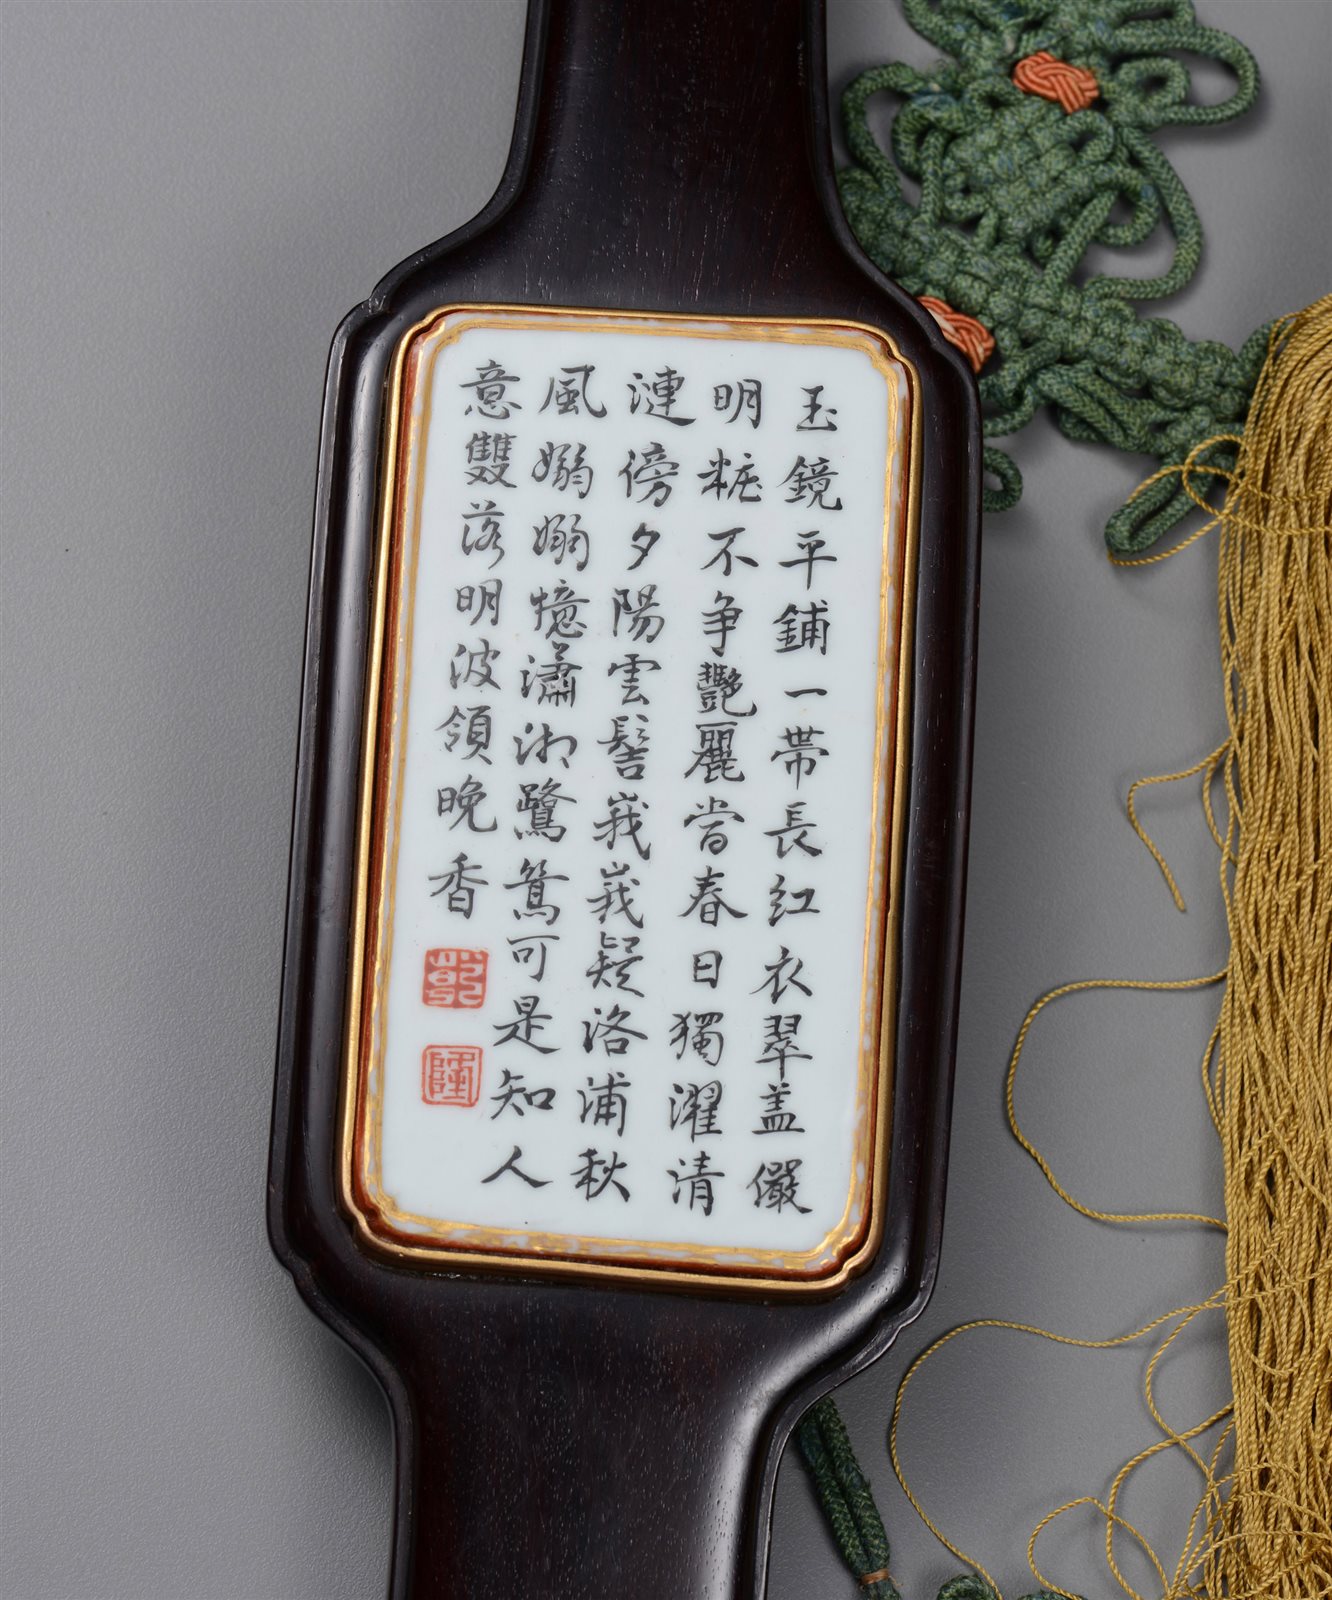 玉鏡平鋪一帶長紅衣翠盖儼
明粧不争艷麗當春日獨濯清
漣傍夕陽雲髻峩峩疑洛浦秋
風嫋嫋憶瀟湘鷺鴛可是知人
意雙落明波領晚香
乾
隆